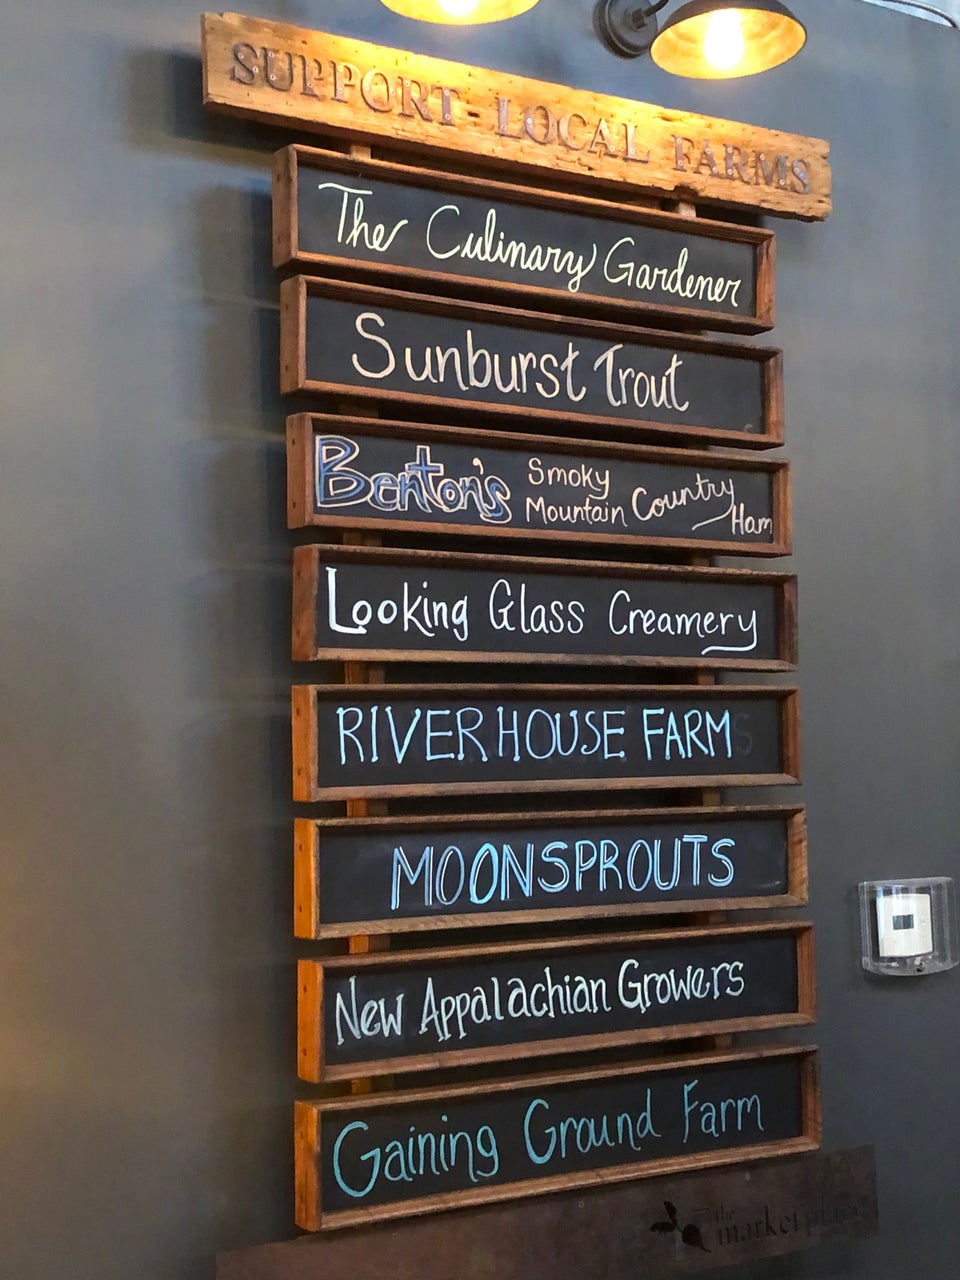 SUPPORT LOCAL FARMS
The Culinary Gardener
Sunburst Trout
Benton's Smoky Mountain Country Ham
Looking Glass Creamery
RIVER HOUSE FARM
MOONSPROUTS
New Appalachian Growers
Gaining Ground Farm
the
market place